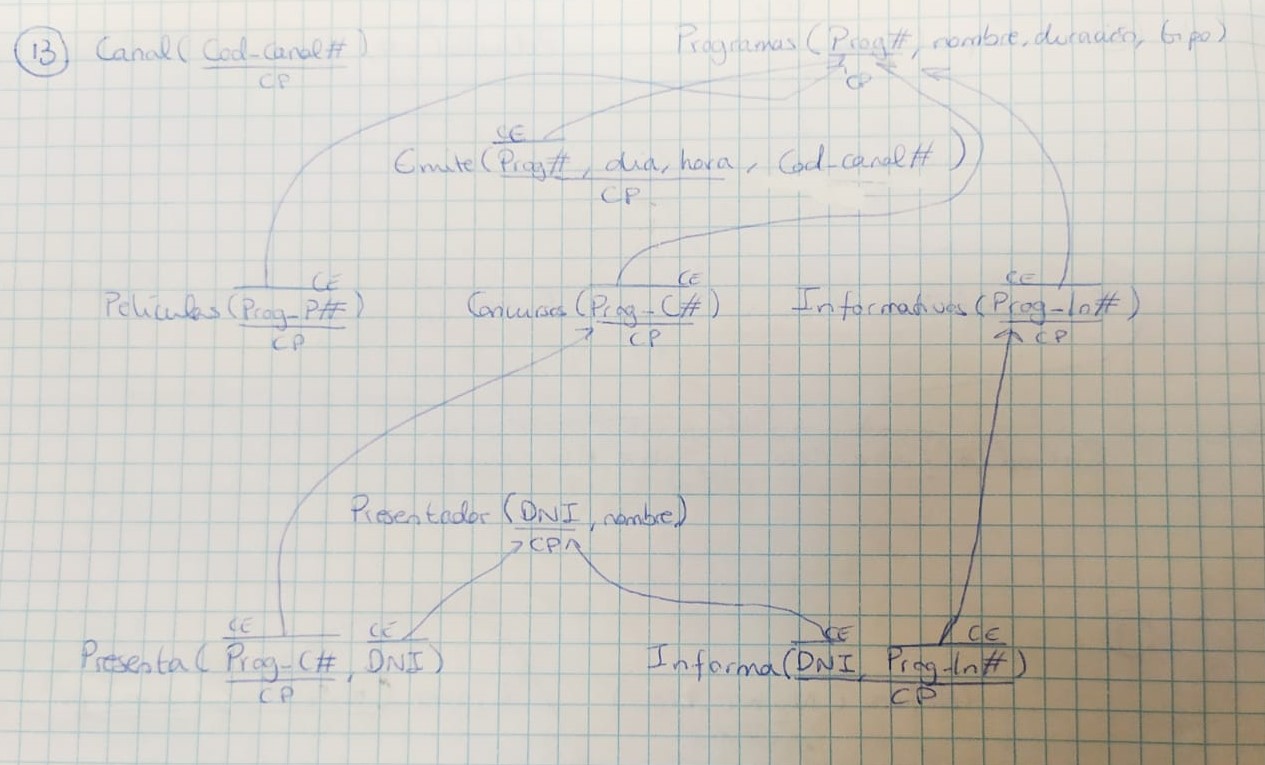 13 Canal( Cod-Canal# )
CP
Programas ( Prog#, nombre, duración, tipo)
CP
CE
Emite( Prog#, dia, hora, Cod-canal# )
CP
CE CE CE
Películas (Prog-P#) Concursos (Prog-C#) Informativos (Prog-In#)
CP CP CP
Presentador (DNI, nombre)
CP
CE CE CE CE
Presenta( Prog-C#, DNI) Informa(DNI, Prog-In#)
CP CP